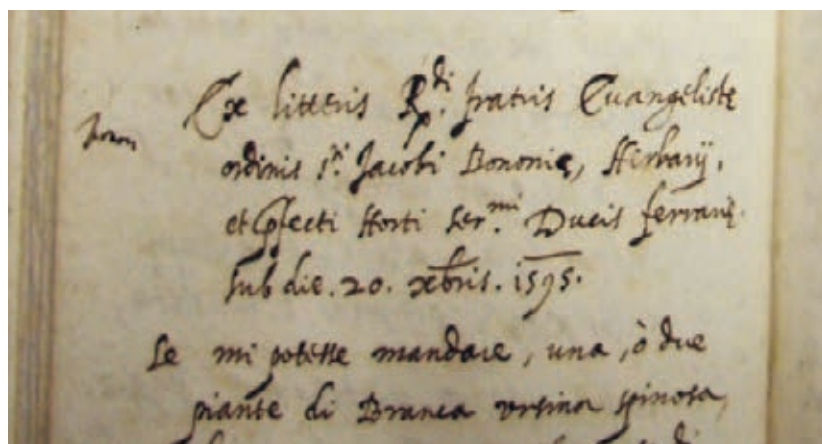 Ex litteris R.di fratris Evangelistę
ordinis s.ti Jacobi Bononię, Herbarij,
et pfecti Horti Ser.mi Ducis ferrarię.
sub die. 20. xbris. 1595.
Se mi potesse mandare, una, ò due
piante di Branca ursina spinosa,